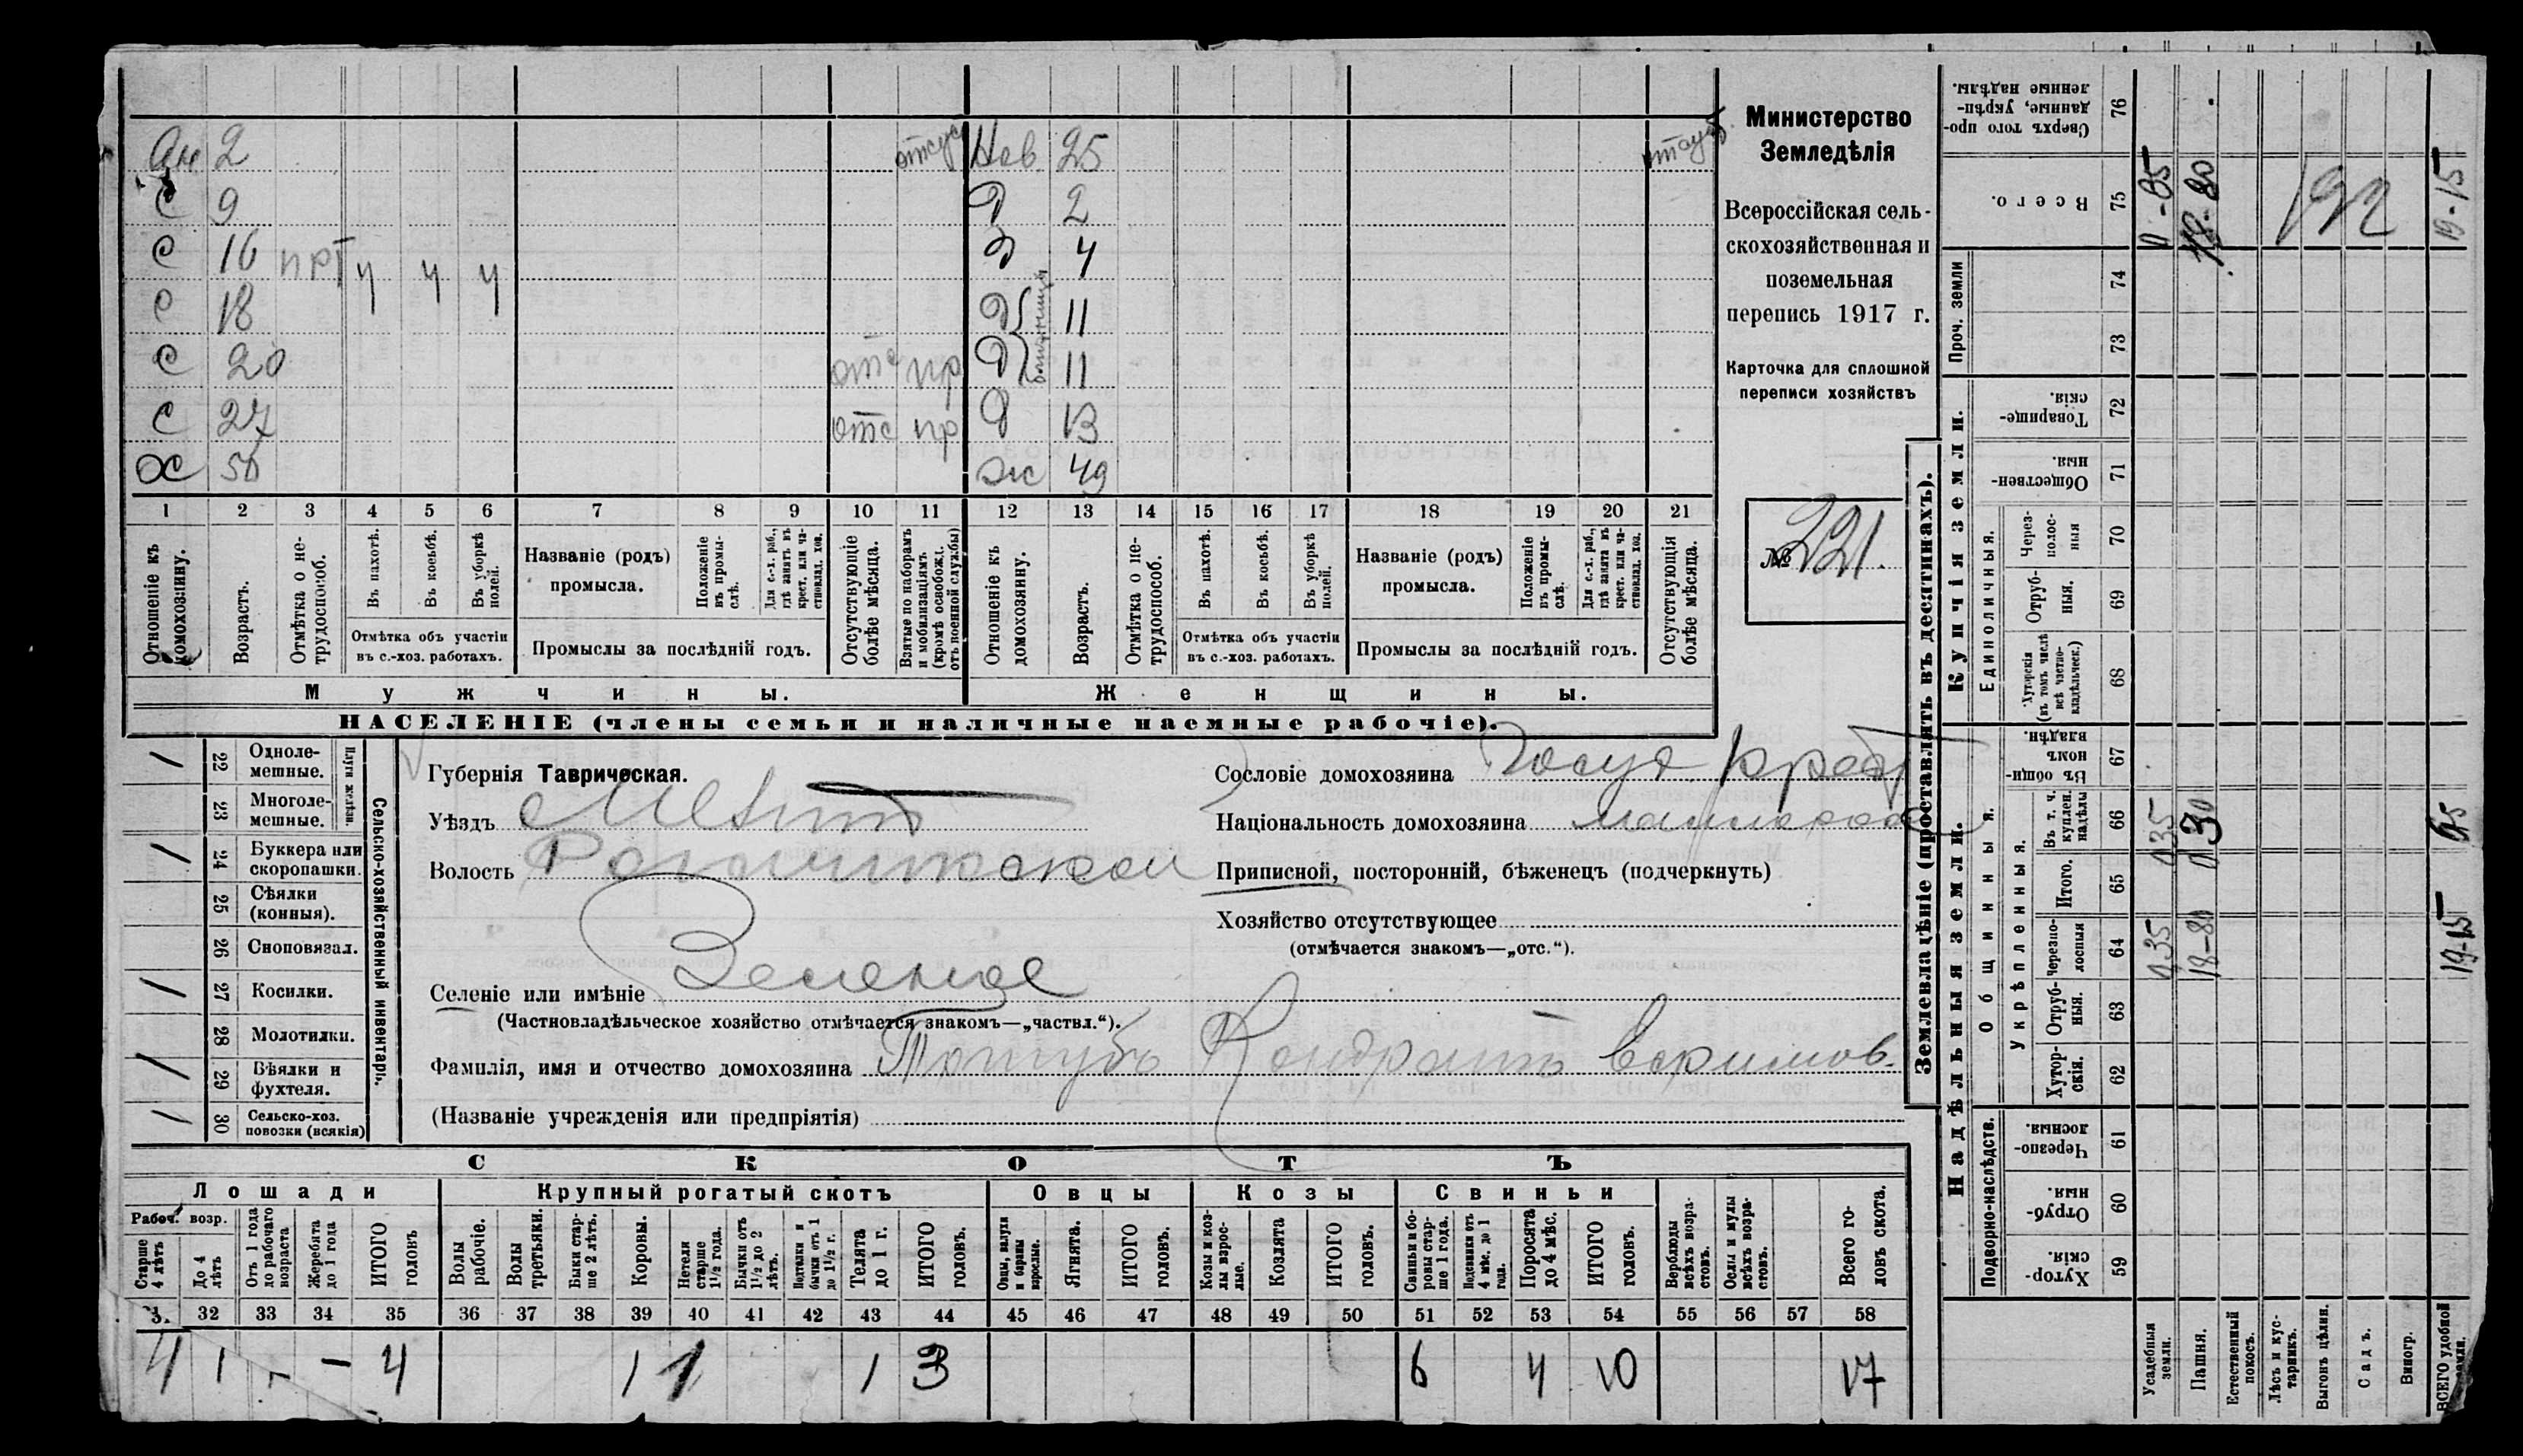 Министерство
Земледѣлія
Всероссійская сель-
скохозяйственная и
поземельная
перепись 1917 г.
Карточка для сплошной
переписи хозяйствъ
№ 221.
2 Нев. 25
С 9 Д 2
С 16 прт ч ч ч Д 4
С 18 Д 11
С 20 отс пр Д 11
С 27 отс пр Д 13
Х 50 Ж 49
1 2 3 4 5 6 7 8 9 10 11 12 13 14 15 16 17 18 19 20 21
Отношеніе къ домохозяину.
Возрастъ.
Отмѣтка о не-трудоспособ.
Въ пахотѣ.
Въ косьбѣ.
Въ уборкѣ полей.
Отмѣтка объ участіи въ с.-хоз. работахъ.
Названіе (родъ) промысла.
Положеніе въ промы-слѣ.
Для с.-х. раб., гдѣ занятъ въ крест. или ча-стновлад. хоз.
Промыслы за послѣдній годъ.
Отсутствующіе болѣе мѣсяца.
Взятые по наборамъ и мобилизаціямъ (кромѣ освобожд. отъ военной службы)
Отношеніе къ домохозяину.
Возрастъ.
Отмѣтка о не-трудоспособ.
Въ пахотѣ.
Въ косьбѣ.
Въ уборкѣ полей.
Отмѣтка объ участіи въ с.-хоз. работахъ.
Названіе (родъ) промысла.
Положеніе въ промы-слѣ.
Для с.-х. раб., гдѣ занята въ крест. или ча-стновлад. хоз.
Промыслы за послѣдній годъ.
Отсутствующія болѣе мѣсяца.
Мужчины. Женщины.
НАСЕЛЕНІЕ (члены семьи и наличные наемные рабочіе).
Сельско-хозяйственный инвентарь.
Плуги желѣзн.
/ 22 Одноле-мешные.
23 Многоле-мешные.
/ 24 Буккера или скоропашки.
25 Сѣялки (конныя).
26 Сноповязал.
/ 27 Косилки.
28 Молотилки.
/ 29 Вѣялки и фухтеля.
/ 30 Сельско-хоз. повозки (всякія)
Губернія Таврическая.
Уѣздъ Мелит
Волость Рогачикской
Селеніе или имѣніе Зеленое
(Частновладѣльческое хозяйство отмѣчается знакомъ—„частвл.“).
Фамилія, имя и отчество домохозяина Кондратъ
(Названіе учрежденія или предпріятія)
Сословіе домохозяина Госуд. крест
Національность домохозяина малоросс
Приписной, посторонній, бѣженецъ (подчеркнуть)
Хозяйство отсутствующее
(отмѣчается знакомъ—„отс.“).
СКОТЪ
Лошади Крупный рогатый скотъ Овцы Козы Свиньи
Рабоч. возр.
Старше 4 лѣтъ
До 4 лѣтъ
Отъ 1 года до рабочаго возраста
Жеребята до 1 года
ИТОГО головъ
Волы рабочіе.
Волы третьяки.
Быки стар-ше 2 лѣтъ.
Коровы.
Нетели старше 1½ года.
Бычки отъ 1½ до 2 лѣтъ.
Подтелки и бычки отъ 1 до 1½ г.
Телята до 1 г.
ИТОГО головъ.
Овцы, валухи и бараны взрослые.
Ягнята.
ИТОГО головъ.
Козы и коз-лы взрос-лые.
Козлята
ИТОГО головъ.
Свиньи и бо-ровы стар-ше 1 года.
Подсвинки отъ 4 мѣс. до 1 года.
Поросята до 4 мѣс.
ИТОГО головъ.
Верблюды всѣхъ возра-стовъ.
Ослы и мулы всѣхъ возра-стовъ.
Всего го-ловъ скота.
32 33 34 35 36 37 38 39 40 41 42 43 44 45 46 47 48 49 50 51 52 53 54 55 56 57 58
4 1 - - 4 1 1 1 3 6 4 10 17
Землевладѣніе (проставлять въ десятинахъ).
Надѣльныя земли.
Купчія земли.
Проч. земли
Подворно-наслѣдств.
Общинныя.
Укрѣпленныя.
Единоличныя.
Хутор-скія. 59
Отруб-ныя. 60
Черезпо-лосныя. 61
Хутор-скія. 62
Отруб-ныя. 63
Черезпо-лосныя 64
Итого. 65
Въ т. ч. куплен. надѣлы 66
Въ общин-номъ владѣн. 67
Хуторскія (въ томъ числѣ всѣ частно-владѣльческ.) 68
Отруб-ныя. 69
Через-полос-ныя 70
Обществен-ныя. 71
Товарище-скія. 72
73
74
Всего. 75
Сверхъ того про-данные, укрѣп-ленные надѣлы. 76
Усадебныя земли. 0.35 0.35
Пашня. 18-80 18-80
Естественный покосъ.
Лѣсъ и кус-тарникъ.
Выгонъ цѣлин.
Садъ.
Виногр.
ВСЕГО удобной земли. 19-15 19-15
192